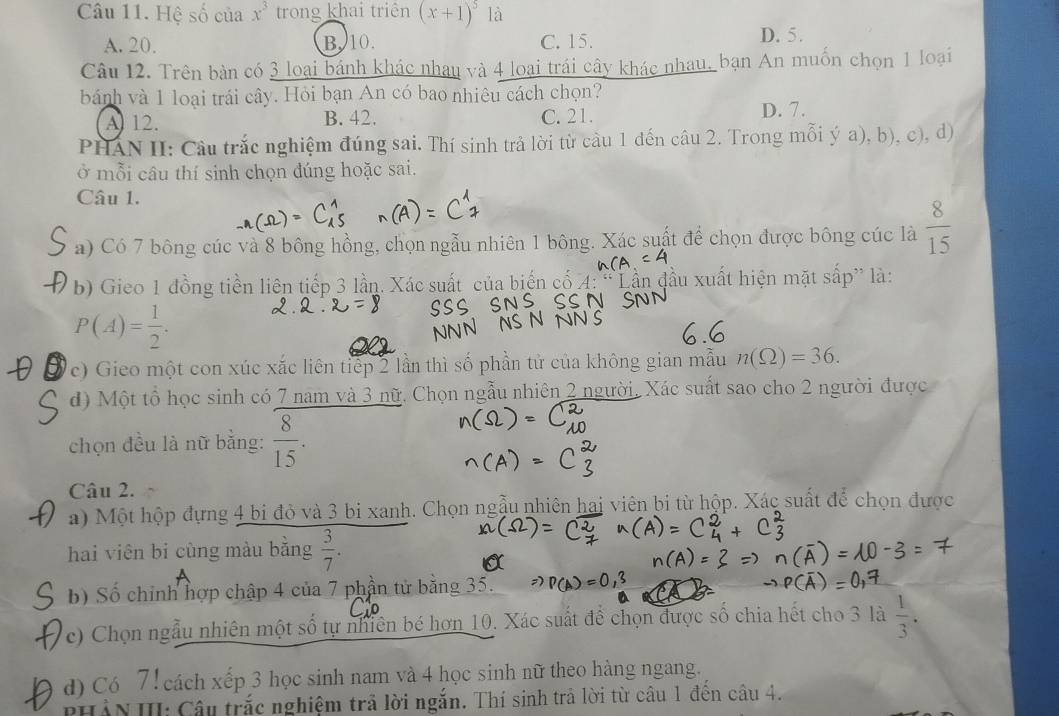 Câu 11. Hệ số của x³ trong khai triển (x+1)⁵ là
A. 20. B. 10. C. 15. D. 5.
Câu 12. Trên bàn có 3 loại bánh khác nhau và 4 loại trái cây khác nhau, bạn An muốn chọn 1 loại
bánh và 1 loại trái cây. Hỏi bạn An có bao nhiêu cách chọn?
A. 12. B. 42. C. 21. D. 7.
PHẦN II: Câu trắc nghiệm đúng sai. Thí sinh trả lời từ câu 1 đến câu 2. Trong mỗi ý a), b), c), d)
ở mỗi câu thí sinh chọn đúng hoặc sai.
Câu 1.
n(Ω) = C¹₁₅ n(A) = C¹₇
S a) Có 7 bông cúc và 8 bông hồng, chọn ngẫu nhiên 1 bông. Xác suất để chọn được bông cúc là 8/15
n(A = 4
Đ b) Gieo 1 đồng tiền liên tiếp 3 lần. Xác suất của biến cố A: “ Lần đầu xuất hiện mặt sấp” là:
P(A) = 1/2. 2.2.2=8 SSS SNS SSN SNN
NNN NSN NNS
6.6
Đ c) Gieo một con xúc xắc liên tiếp 2 lần thì số phần tử của không gian mẫu n(Ω) = 36.
S d) Một tổ học sinh có 7 nam và 3 nữ. Chọn ngẫu nhiên 2 người. Xác suất sao cho 2 người được
n(Ω) = C²₁₀
chọn đều là nữ bằng: 8/15.
n(A) = C²₃
Câu 2.
Đ a) Một hộp đựng 4 bi đỏ và 3 bi xanh. Chọn ngẫu nhiên hai viên bi từ hộp. Xác suất để chọn được
n(Ω) = C²₇ n(A) = C²₄ + C²₃
hai viên bi cùng màu bằng 3/7.
n(A) = 3 => n(Ā) = 10-3 = 7
S b) Số chỉnh hợp chập 4 của 7 phần tử bằng 35. => P(A) = 0,3 → P(Ā) = 0,7
A
C₁₀
Đ c) Chọn ngẫu nhiên một số tự nhiên bé hơn 10. Xác suất để chọn được số chia hết cho 3 là 1/3.
Đ d) Có 7! cách xếp 3 học sinh nam và 4 học sinh nữ theo hàng ngang.
PHẦN III: Câu trắc nghiệm trả lời ngắn. Thí sinh trả lời từ câu 1 đến câu 4.